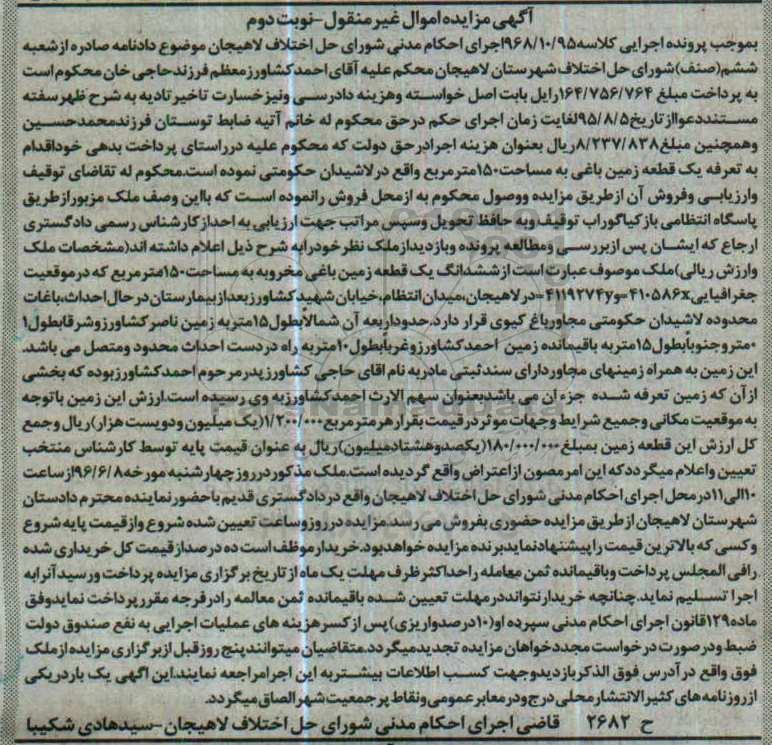 آگهی مزایده اموال غیر منقول-نوبت دوم
بموجب پرونده اجرایی کلاسه ۹۶۸/۱۰/۹۵اجرای احکام مدنی شورای حل اختلاف لاهیجان موضوع دادنامه صادره از شعبه
ششم(صنف)شورای حل اختلاف شهرستان لاهیجان محکم علیه آقای احمد کشاورز معظم فرزند حاجی خان محکوم است
به پرداخت مبلغ ۱۶۴/۷۵۶/۷۶۴رایل بابت اصل خواسته وهزینه دادرسی ونیز خسارت تاخیر تادیه به شرح ظهر سفته
مستند دعوا از تاریخ ۹۵/۸/۵لغایت زمان اجرای حکم در حق محکوم له خانم آتیه ضابط توستان فرزند محمد حسین
وهمچنین مبلغ ۸/۲۳۷/۸۳۸ریال بعنوان هزینه اجرا در حق دولت که محکوم علیه در راستای پرداخت بدهی خود اقدام
به تعرفه یک قطعه زمین باغی به مساحت ۱۵۰متر مربع واقع در لاشیدان حکومتی نموده است.محکوم له تقاضای توقیف
وارزیابی وفروش آن از طریق مزایده ووصول محکوم به از محل فروش را نموده است که بااین وصف ملک مزبور از طریق
پاسگاه انتظامی بازکیاگوراب توقیف وبه حافظ تحویل وسپس مراتب جهت ارزیابی به احداز کارشناس رسمی دادگستری
ارجاع که ایشان پس از بررسی ومطالعه پرونده وبازدید از ملک نظر خود رابه شرح ذیل اعلام داشته اند(مشخصات ملک
وارزش ریالی)ملک موصوف عبارت است از ششدانگ یک قطعه زمین باغی مخروبه به مساحت ۱۵۰متر مربع که در موقعیت
جغرافیایی ۴۱۰۵۸۶x=و۴۱۱۹۲۷۴y=در لاهیجان،میدان انتظام،خیابان شهید کشاورز بعد از بیمارستان در حال احداث،باغات
محدوده لاشیدان حکومتی مجاور باغ کیوی قرار دارد.حدود اربعه آن شمالاً بطول ۱۵متر به زمین ناصر کشاورز وشرقا بطول۱
۰متر وجنوباً بطول ۱۵متر به باقیمانده زمین احمد کشاورز وغرباً بطول ۱۰متر به راه در دست احداث محدود ومتصل می باشد.
این زمین به همراه زمینهای مجاور دارای سند ثبتی مادر به نام اقای حاجی کشاورز پدر مرحوم احمد کشاورز بوده که بخشی
از آن که زمین تعرفه شده جزء آن می باشد بعنوان سهم الارث احمد کشاورز به وی رسیده است.ارزش این زمین باتوجه
به موقعیت مکانی وجمیع شرایط وجهات موثر در قیمت بقرار هر متر مربع ۱/۲۰۰/۰۰۰(یک میلیون ودویست هزار)ریال وجمع
کل ارزش این قطعه زمین بمبلغ ۱۸۰/۰۰۰/۰۰۰(یکصد وهشتاد میلیون)ریال به عنوان قیمت پایه توسط کارشناس منتخب
تعیین واعلام میگردد که این امر مصون از اعتراض واقع گردیده است.ملک مذکور در روز چهارشنبه مورخه ۹۶/۶/۸از ساعت
۱۰الی۱۱در محل اجرای احکام مدنی شورای حل اختلاف لاهیجان واقع در دادگستری قدیم باحضور نماینده محترم دادستان
شهرستان لاهیجان از طریق مزایده حضوری بفروش می رسد.مزایده در روز وساعت تعیین شده شروع واز قیمت پایه شروع
وکسی که بالاترین قیمت را پیشنهاد نماید برنده مزایده خواهد بود.خریدار موظف است ده درصد از قیمت کل خریداری شده
رافی المجلس پرداخت وباقیمانده ثمن معامله را حداکثر ظرف مهلت یک ماه از تاریخ برگزاری مزایده پرداخت ورسید آنرا به
اجرا تسلیم نماید.چنانچه خریدار نتواند در مهلت تعیین شده باقیمانده ثمن معالمه رادرفرجه مقرر پرداخت نماید وفق
ماده ۱۲۹قانون اجرای احکام مدنی سپرده او(۱۰درصد واریزی)پس از کسر هزینه های عملیات اجرایی به نفع صندوق دولت
ضبط ودر صورت درخواست مجدد خواهان مزایده تجدید میگردد.متقاضیان میتوانند پنج روز قبل از برگزاری مزایده از ملک
فوق واقع در آدرس فوق الذکر بازدید وجهت کسب اطلاعات بیشتر به این اجرا مراجعه نمایند.این اگهی یک بار در یکی
از روزنامه های کثیر الانتشار محلی درج ودر معابر عمومی ونقاط پر جمعیت شهر الصاق میگردد.
ح ۲۶۸۲ قاضی اجرای احکام مدنی شورای حل اختلاف لاهیجان-سید هادی شکیبا
ParsNamadData